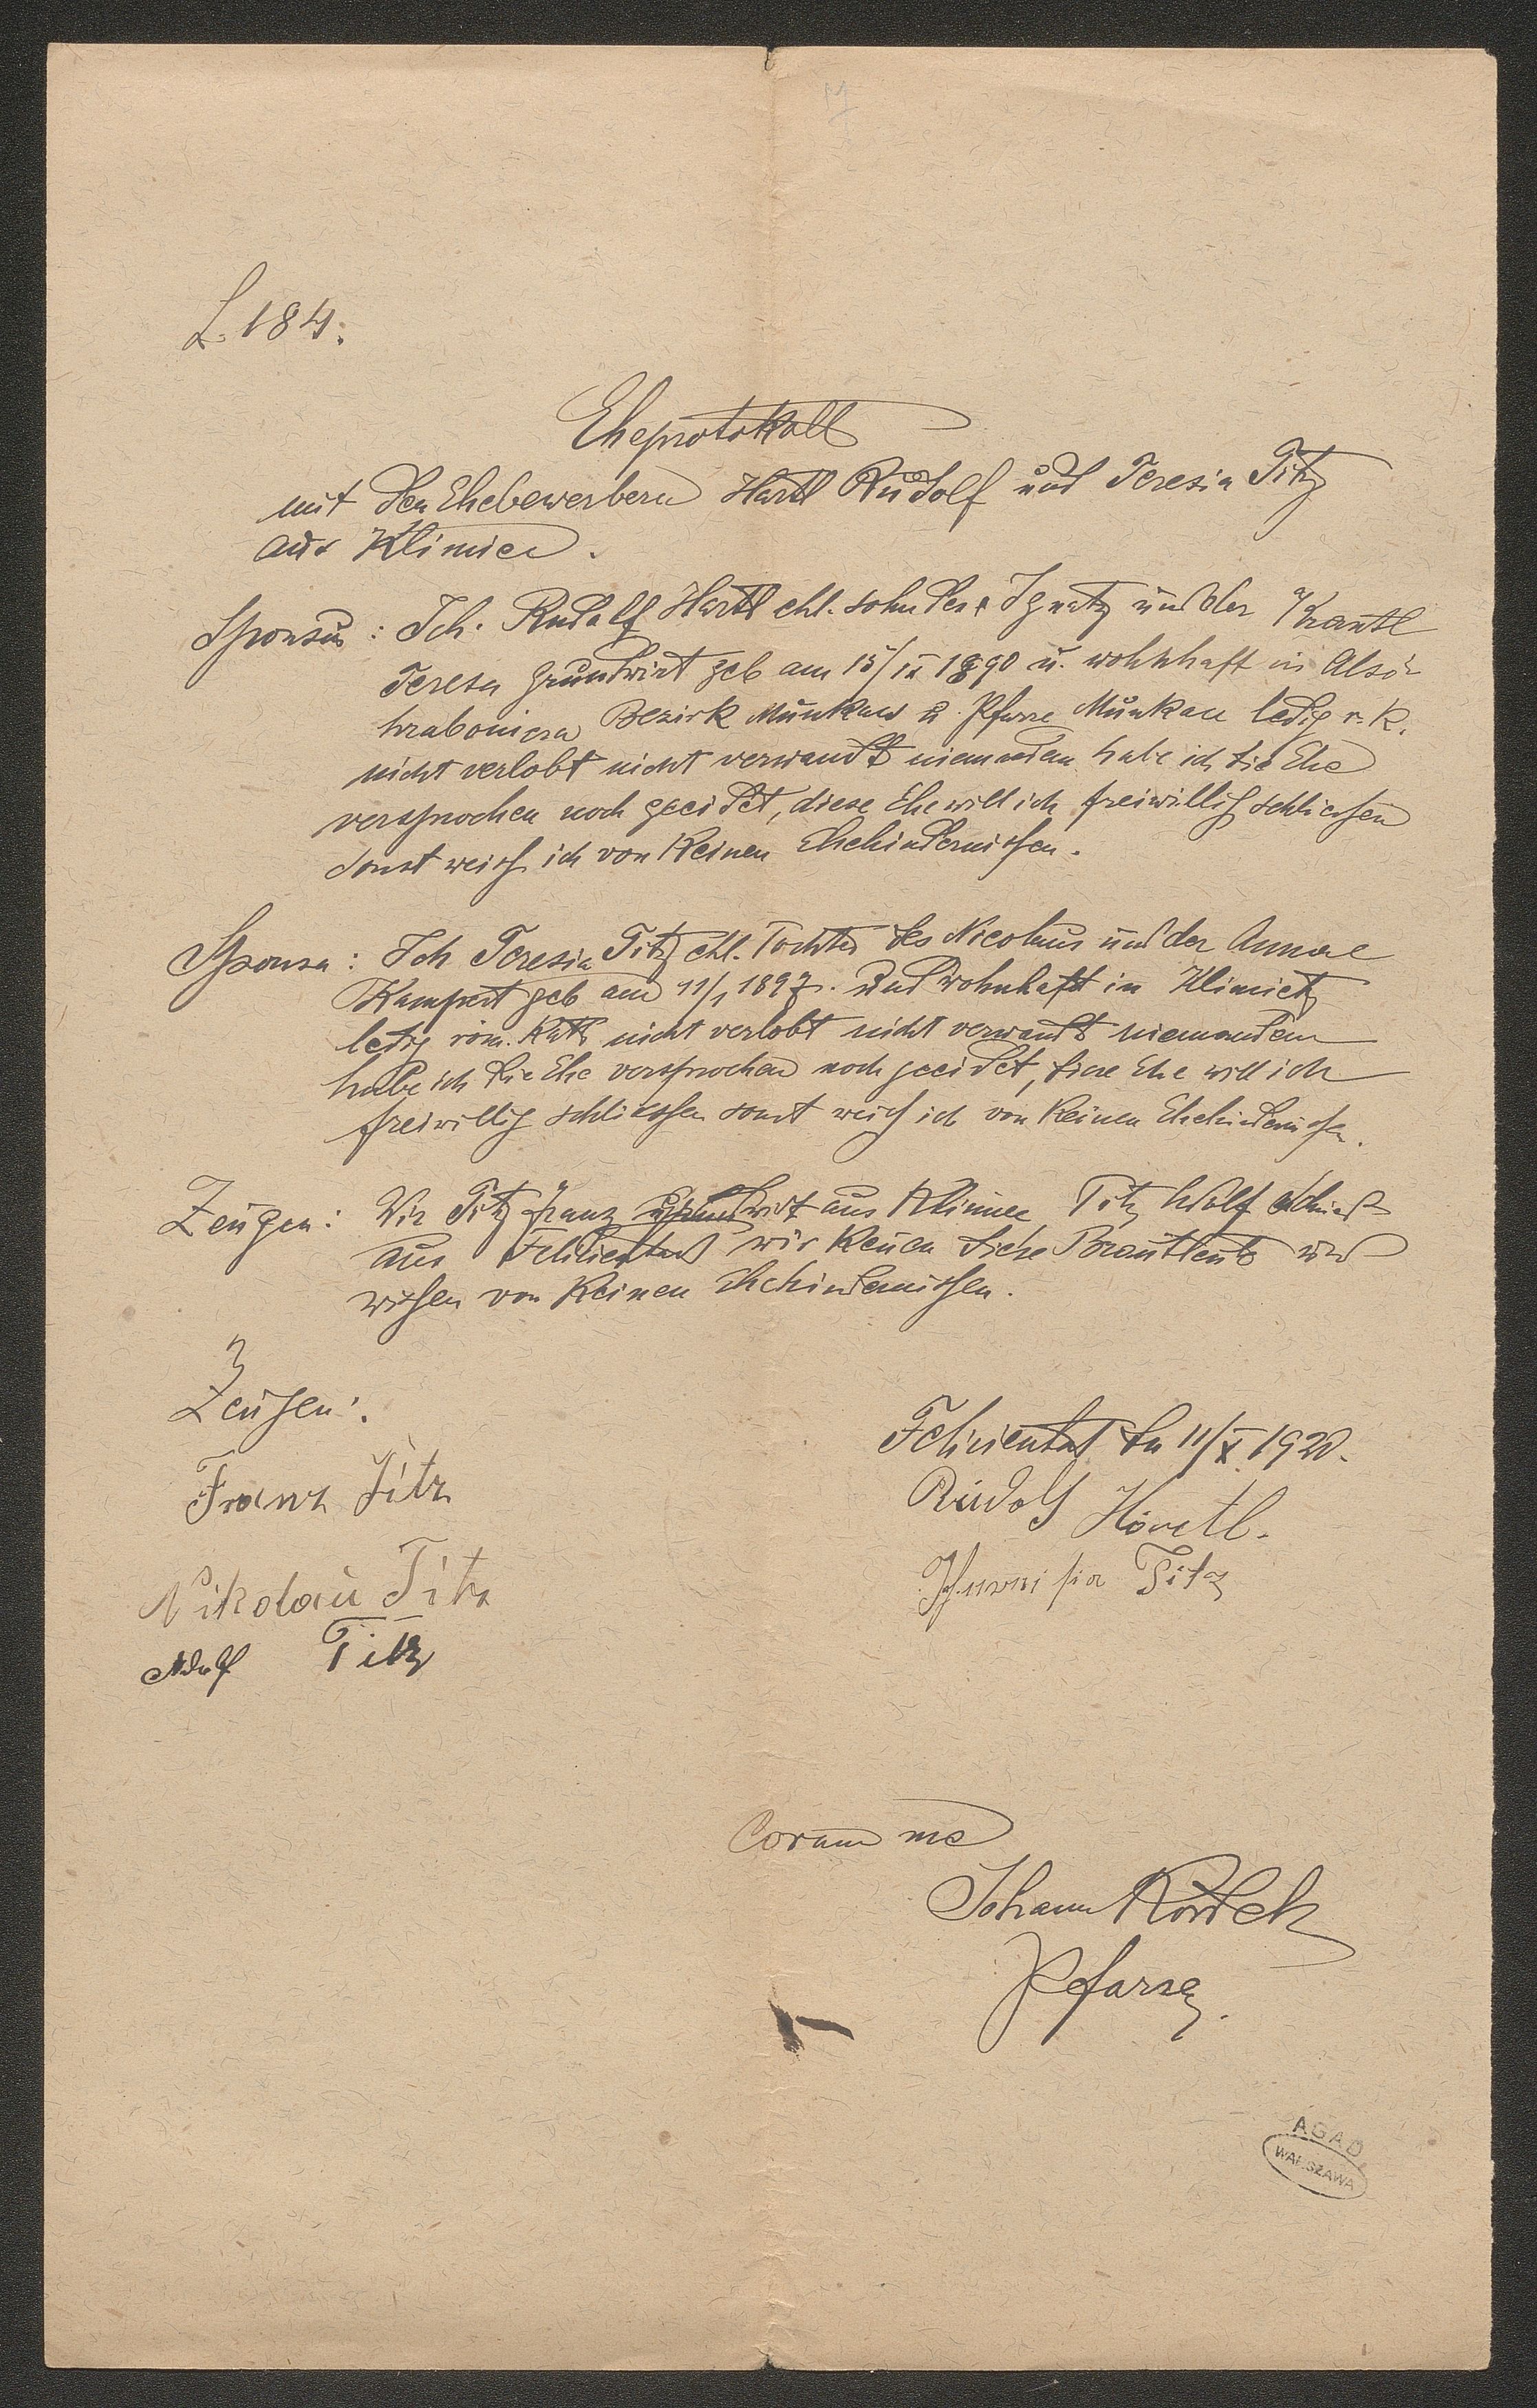 L. 184.
Eheprotokoll
mit den Ehebewerbern Hartl Rudolf und Teresia Titz
aus Klimiec.
Sponsus: Ich. Rudolf Hartl ehl. Sohn des Ignatz und der Krantl
Teresa Grundwirt geb am 15/IX 1890 u. wohnhaft in Alsó-
hrabonica Bezirk Munkacs u. Pfarre Munkacs ledig r. k.
nicht verlobt nicht verwandt niemandem habe ich die Ehe
versprochen noch geeidet, diese Ehe will ich freiwillig schliessen
sonst weiss ich von keinen Ehehindernissen.
Sponsa: Ich Teresia Titz ehl. Tochter des Nicolaus und der Annae
Kampert geb am 11/1 1897. und wohnhaft in Klimietz
ledig röm. kath nicht verlobt nicht verwandt niemandem
habe ich die Ehe versprochen noch geeidet, diese Ehe will ich
freiwillig schliessen sonst weiss ich von keinen Ehehindernissen.
Zeugen: Wir Titz Franz Grundwirt aus Klimiec Titz Adolf Schmied
aus Felicienthal wir kenen diese Brautleute und
wissen von keinen Ehehindernissen.
3
Zeugen:
Felicienthal den 11/X 1920.
Franz Titz
Rudolf Hartl.
Nikolau Titz
Titz
Adolf Titz
Coram me
Johann
Pfarrer.
AGAD
WARSZAWA